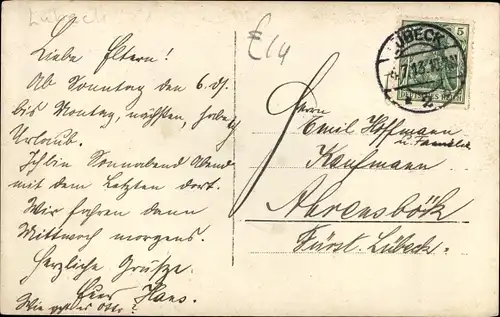 Lübeck
E14
Liebe Eltern!
Ab Sonntag den 6. ds.
bis Montag, nächsten, habe ich
Urlaub.
Ich bin Sonnabend Abend
mit dem Letzten dort.
Wir fahren dann
Mittwoch morgens.
Herzliche Grüsse
Euer Hans.
Wie geht es Otto?
LÜBECK
13.
2
5
DEUTSCHES REICH
Herrn
Emil Hoffmann
u. Familie
Kaufmann
Ahrensbök
Fürst. Lübeck.